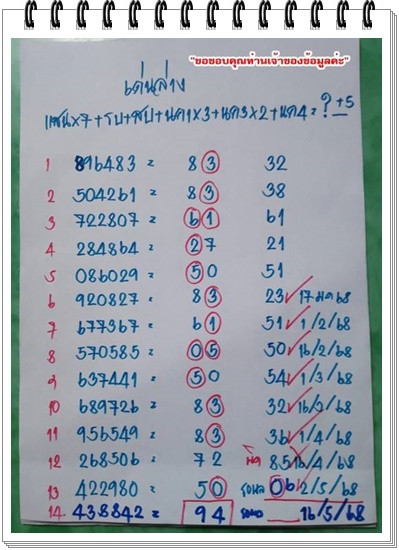 "ขอขอบคุณท่านเจ้าของข้อมูลค่ะ"
เด่นล่าง
แสน×7+รบ+ชบ+นค1×3+นค3×2+นค4=?+5
1 896483 = 83 32
2 504261 = 83 38
3 722807 = 61 61
4 284864 = 27 21
5 086029 = 50 51
6 920827 = 83 23 ✓ 17 มค 68
7 677367 = 61 51 ✓ 1/2/68
8 570585 = 05 50 ✓ 16/2/68
9 637441 = 50 54 ✓ 1/3/68
10 689726 = 83 32 ✓ 16/3/68
11 956549 = 83 36 ✓ 1/4/68
12 268506 = 72 85 16/4/68
13 422980 = 50 06 2/5/68
14 438842 = 94 ___ 16/5/68